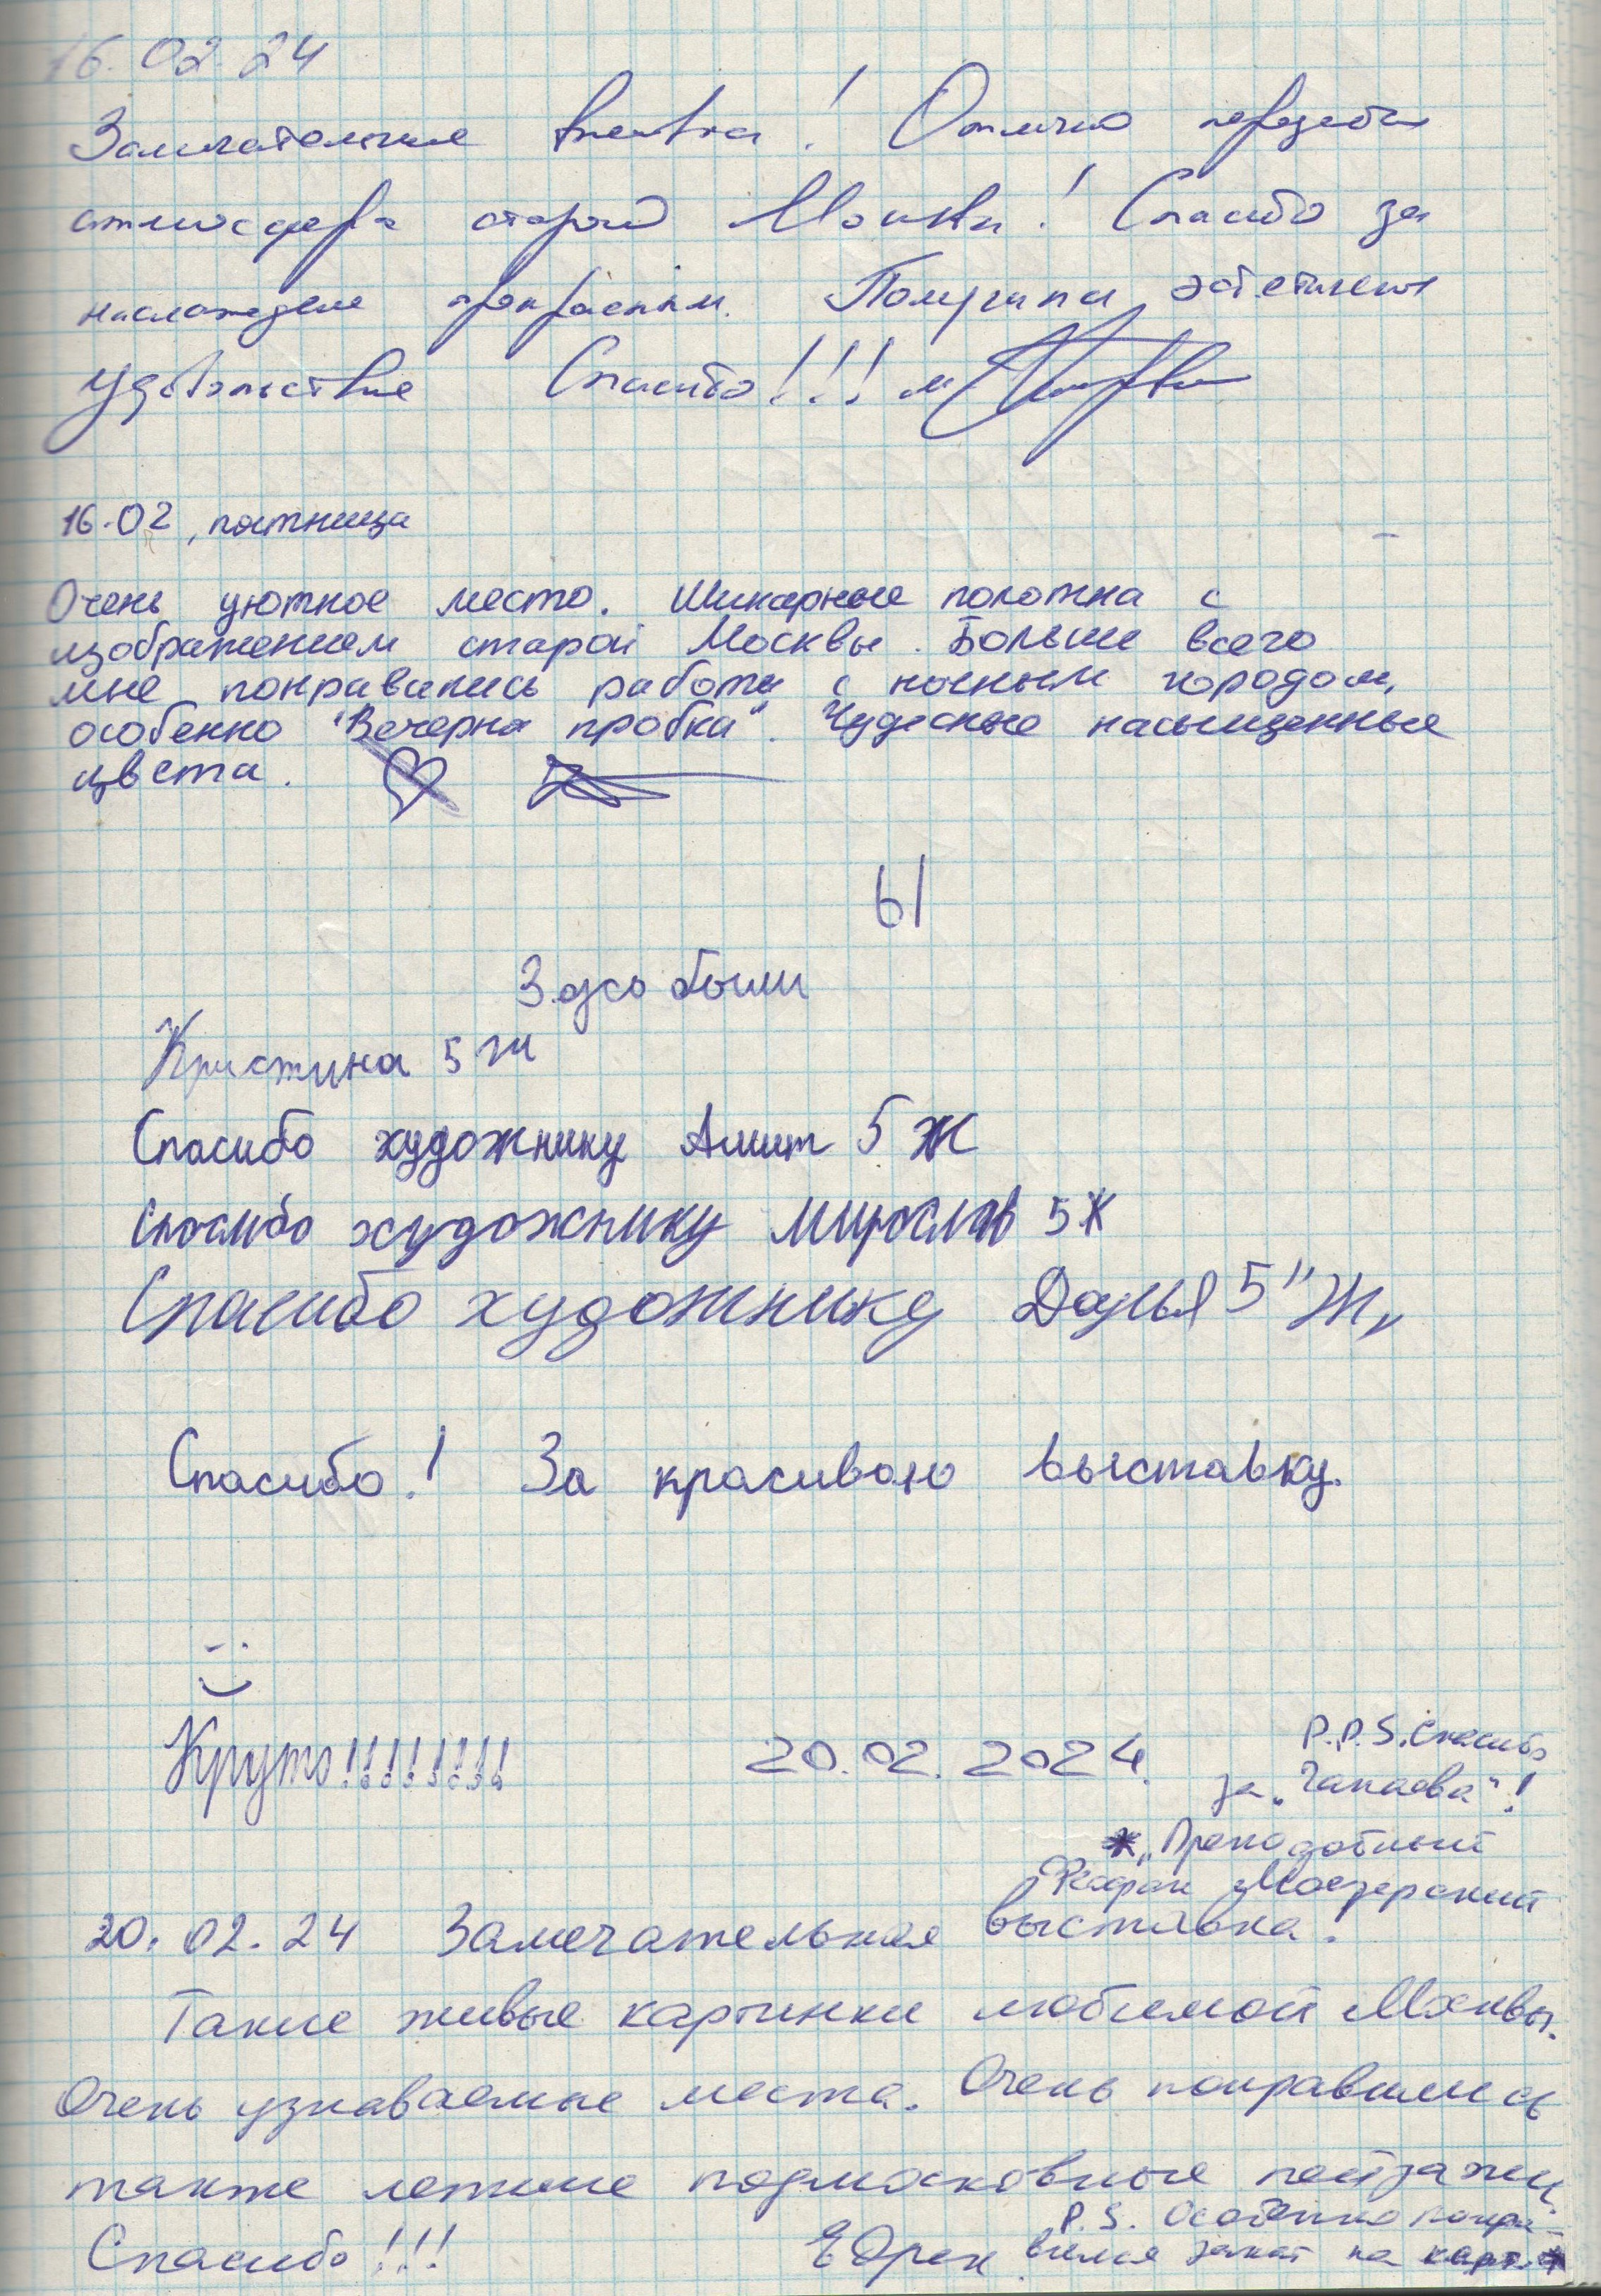 16.02.24
Замечательная выставка! Отлично передана
атмосфера старой Москвы! Спасибо за
наслаждение прекрасным. Получила эстетическое
удовольствие Спасибо!!!
16.02, пятница
Очень уютное место. Шикарные полотна с
изображением старой Москвы. Больше всего
мне понравились работы с ночным городом,
особенно "Вечерняя пробка". Чудесные насыщенные
цвета.
ы
Здесь были
Кристина 5 Ж
Спасибо художнику Амит 5 Ж
Спасибо художнику Мирослав 5Ж
Спасибо художнику Дарья 5 "Ж"
Спасибо! За красивою выставку.
Круто!!!!!!!!
20.02.2024.
P.P.S. Спасибо
за "Чапаева"!
* "Преподобный
Можайский
20.02.24 Замечательная выставка!
Такие живые картинки любимой Москвы.
Очень узнаваемые места. Очень понравились
также летние подмосковные пейзажи
Спасибо!!!
P.S. Особенно понра-
вился закат на карт. *